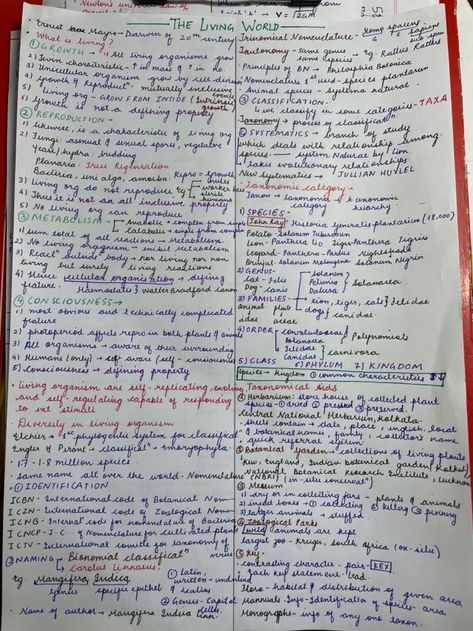 THE LIVING WORLD
• Ernst Mayr - Darwin of 20th century
• What is living?
① GROWTH → All living organisms grow
3) Multicellular organism grow by cell division
4) Growth & Reproducn mutually exclusive
5) living org - GROW FROM INSIDE (Intrinsic growth)
6) Growth is not a defining property
② REPRODUCTION →
1) likewise, is a characteristic of living org
2) Fungi - asexual & sexual spore, vegetative
Yeast/hydra - budding
Planaria - True Regeneration
Bacteria, uni algo, amoeba - Repro = Growth
3) living org do not reproduce eg mule
worker bee
4) Thus it is not an all inclusive property
5) No living organism can reproduce
③ METABOLISM → Anabolic = complex from simple
Catabolic = simple from complex
1) sum total of all reactions → Metabolism
2) No living organism - without Metabolism
3) Reacn outside body → nor living nor non living
but surely → living reactions
4) Hence cellular organisation → defining feature
④ CONSCIOUSNESS →
1) most obvious and technically complicated feature
2) photoperiod affects repro in both plants & animals
3) All organisms → aware of their surrounding
4) Humans (only) → self-aware (self-consciousness)
5) Consciousness → defining property
• living organism are self-replicating, evolving
and self-regulating capable of responding
to ext stimuli
• Diversity in living organism
Eichler → 1st phylogenetic system for classifican
Engler & Prantl → classifican - Embryophyta
• 1.7 - 1.8 million species
• same name all over the world - Nomenclature
① IDENTIFICATION
ICBN - International code of Botanical Nom-
ICZN - International code of Zoological Nom-
ICNB - Internat code for nomenclature of Bacteria
ICNCP - I.C. of Nomenclature for cultivated plants
ICTV - International committee for taxonomy of viruses
② NAMING → Binomial classificatn
Carolus Linnaeus
eg. Mangifera Indica
genus specific epithet
① Latin, written → underlined & Italics
② Genus - Capital
• Name of author → Mangifera Indica Linn.
Trinomial Nomenclature -
Tautonomy - same genus
same species
eg. Rattus Rattus
• Principles of BN → Philosophia Botanica
• Nomenclature 1st used - species plantarum
• Animal species - Systema naturae
③ CLASSIFICATION
we classify in some categories - TAXA
Taxonomy → process of classificatn
④ SYSTEMATICS → branch of study
which deals with relationship among
species → system Naturae by Linn.
• takes evolutionary relationships
New systematics → JULLIAN HUXLEY
• Taxonomic category →
Taxon → taxonomic category → taxonomic hierarchy
1) SPECIES -
John Ray Historia generalis plantarum (18,000)
Potato - Solanum Tuberosum
Lion - Panthera leo Tiger - Panthera Tigris
Leopard - Panthera Pardus Nightshade -
Brinjal - Solanum Melongena Solanum Nigrum
2) GENUS -
Cat - Felis
Dog - Canis
Solanum
Petunia
Datura
Solanacea
3) FAMILIES →
animal plant
idae aceae
lion, tiger, cat } Felidae
dog } canidae
4) ORDER →
convolvulaceae
Solanacea
Polymoniales
Felidae
Canidae
carnivora
5) CLASS 6) PHYLUM 7) KINGDOM
Species → kingdom common characteristics ↓
• Taxonomical Aids
① Herbarium: store house of collected plant
species → dried pressed preserved
Central National Herbarium, Kolkata.
• sheet contain → date, place, english, local
& botanical names, family, collectors name
• quick referral system
② Botanical Garden → collections of living plants
Kew, England, Indian Botanical garden (Kolkata)
National Botanical Research Institute, Lucknow
(NBRI)
③ Museum
2) insect boxes → collecting killing pinning
3) larger animals → stuffed
④ Zoological Parks
wild animals are kept
largest zoo - Kruger, South Africa
⑤ Key -
contrasting character - pair → KEY
• Each key statement - lead.
Flora → habitat & distribution of given area
Manuals - Info - Identificatn of species - area
Monographs - info of any one taxon.